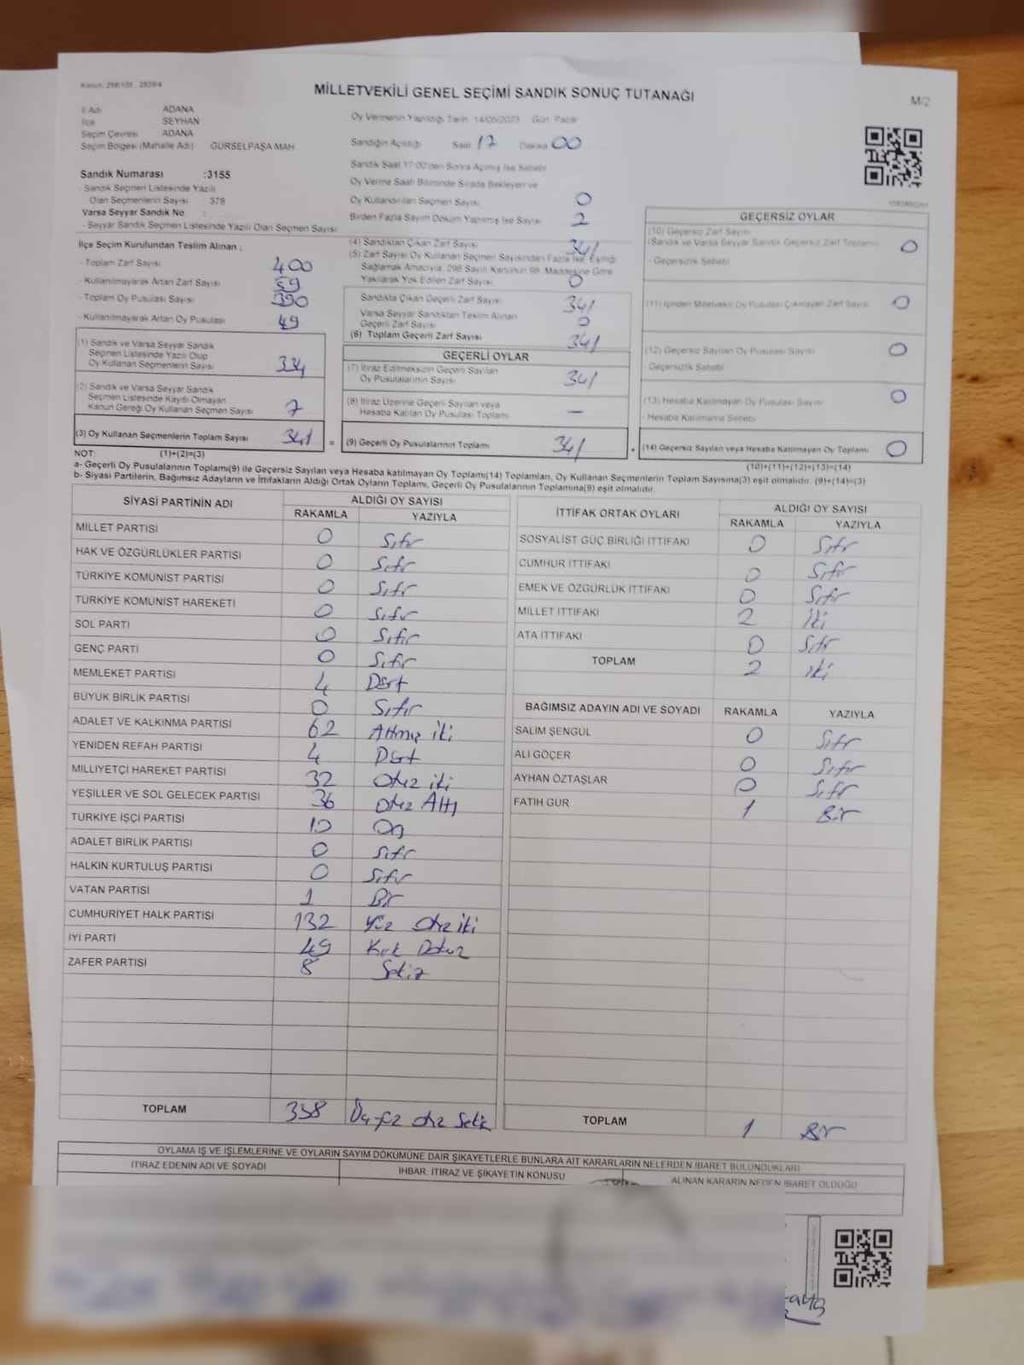 MİLLETVEKİLİ GENEL SEÇİMİ SANDIK SONUÇ TUTANAĞI
M/2
İl Adı ADANA
İlçe SEYHAN
Seçim Çevresi ADANA
Seçim Bölgesi (Mahalle Adı) GÜRSELPAŞA MAH
Sandık Numarası :3155
Sandık Seçmen Listesinde Yazılı
Olan Seçmenlerin Sayısı 378
Varsa Seyyar Sandık No :
Seyyar Sandık Seçmen Listesinde Yazılı Olan Seçmen Sayısı
Oy Vermenin Yapıldığı Tarih 14/05/2023 Gün Pazar
Sandığın Açıldığı Saat 17 Dakika 00
Sandık Saat 17:00'den Sonra Açılmış İse Sebebi
Oy Verme Saati Bitiminde Sırada Bekleyen ve
Oy Kullandırılan Seçmen Sayısı 0
Birden Fazla Sayım Döküm Yapılmış İse Sayısı 2
İlçe Seçim Kurulundan Teslim Alınan ;
- Toplam Zarf Sayısı 400
- Kullanılmayarak Artan Zarf Sayısı 59
- Toplam Oy Pusulası Sayısı 390
- Kullanılmayarak Artan Oy Pusulası 49
(1) Sandık ve Varsa Seyyar Sandık
Seçmen Listesinde Yazılı Olup
Oy Kullanan Seçmenlerin Sayısı 334
(2) Sandık ve Varsa Seyyar Sandık
Seçmen Listesinde Kaydı Olmayan
Kanun Gereği Oy Kullanan Seçmen Sayısı 7
(3) Oy Kullanan Seçmenlerin Toplam Sayısı 341 =
(4) Sandıktan Çıkan Zarf Sayısı 341
(5) Zarf Sayısı Oy Kullanan Seçmen Sayısından Fazla İse, Eşitliği
Sağlamak Amacıyla, 298 Sayılı Kanunun 98. Maddesine Göre
Yakılarak Yok Edilen Zarf Sayısı 0
Sandıkta Çıkan Geçerli Zarf Sayısı 341
Varsa Seyyar Sandıktan Teslim Alınan
Geçerli Zarf Sayısı 0
(6) Toplam Geçerli Zarf Sayısı 341
GEÇERLİ OYLAR
(7) İtiraz Edilmeksizin Geçerli Sayılan
Oy Pusulalarının Sayısı 341
(8) İtiraz Üzerine Geçerli Sayılan veya
Hesaba Katılan Oy Pusulası Toplamı —
(9) Geçerli Oy Pusulalarının Toplamı 341 +
GEÇERSİZ OYLAR
(10) Geçersiz Zarf Sayısı
(Sandık ve Varsa Seyyar Sandık Geçersiz Zarf Toplamı) 0
- Geçersizlik Sebebi
(11) İçinden Milletvekili Oy Pusulası Çıkmayan Zarf Sayısı 0
(12) Geçersiz Sayılan Oy Pusulası Sayısı 0
Geçersizlik Sebebi
(13) Hesaba Katılmayan Oy Pusulası Sayısı 0
- Hesaba Katılmama Sebebi
(14) Geçersiz Sayılan veya Hesaba Katılmayan Oy Toplamı 0
NOT: (1)+(2)=(3) (10)+(11)+(12)+(13)=(14)
a- Geçerli Oy Pusulalarının Toplamı(9) ile Geçersiz Sayılan veya Hesaba katılmayan Oy Toplamı(14) Toplamları, Oy Kullanan Seçmenlerin Toplam Sayısına(3) eşit olmalıdır. (9)+(14)=(3)
b- Siyasi Partilerin, Bağımsız Adayların ve İttifakların Aldığı Ortak Oyların Toplamı, Geçerli Oy Pusulalarının Toplamına(9) eşit olmalıdır.
SİYASİ PARTİNİN ADI ALDIĞI OY SAYISI
RAKAMLA YAZIYLA
MİLLET PARTİSİ 0 Sıfır
HAK VE ÖZGÜRLÜKLER PARTİSİ 0 Sıfır
TÜRKİYE KOMÜNİST PARTİSİ 0 Sıfır
TÜRKİYE KOMÜNİST HAREKETİ 0 Sıfır
SOL PARTİ 0 Sıfır
GENÇ PARTİ 0 Sıfır
MEMLEKET PARTİSİ 4 Dört
BÜYÜK BİRLİK PARTİSİ 0 Sıfır
ADALET VE KALKINMA PARTİSİ 62 Altmış iki
YENİDEN REFAH PARTİSİ 4 Dört
MİLLİYETÇİ HAREKET PARTİSİ 32 Otuz iki
YEŞİLLER VE SOL GELECEK PARTİSİ 36 Otuz Altı
TÜRKİYE İŞÇİ PARTİSİ 10 On
ADALET BİRLİK PARTİSİ 0 Sıfır
HALKIN KURTULUŞ PARTİSİ 0 Sıfır
VATAN PARTİSİ 1 Bir
CUMHURİYET HALK PARTİSİ 132 Yüz Otuz iki
İYİ PARTİ 49 Kırk Dokuz
ZAFER PARTİSİ 8 Sekiz
TOPLAM 338 Üç yüz otuz Sekiz
İTTİFAK ORTAK OYLARI ALDIĞI OY SAYISI
RAKAMLA YAZIYLA
SOSYALİST GÜÇ BİRLİĞİ İTTİFAKI 0 Sıfır
CUMHUR İTTİFAKI 0 Sıfır
EMEK VE ÖZGÜRLÜK İTTİFAKI 0 Sıfır
MİLLET İTTİFAKI 2 İki
ATA İTTİFAKI 0 Sıfır
TOPLAM 2 iki
BAĞIMSIZ ADAYIN ADI VE SOYADI RAKAMLA YAZIYLA
SALİM ŞENGÜL 0 Sıfır
ALİ GÖÇER 0 Sıfır
AYHAN ÖZTAŞLAR 0 Sıfır
FATİH GÜR 1 Bir
TOPLAM 1 Bir
OYLAMA İŞ VE İŞLEMLERİNE VE OYLARIN SAYIM DÖKÜMÜNE DAİR ŞİKAYETLERLE BUNLARA AİT KARARLARIN NELERDEN İBARET BULUNDUKLARI
İTİRAZ EDENİN ADI VE SOYADI İHBAR, İTİRAZ VE ŞİKAYETİN KONUSU ALINAN KARARIN NEDEN İBARET OLDUĞU